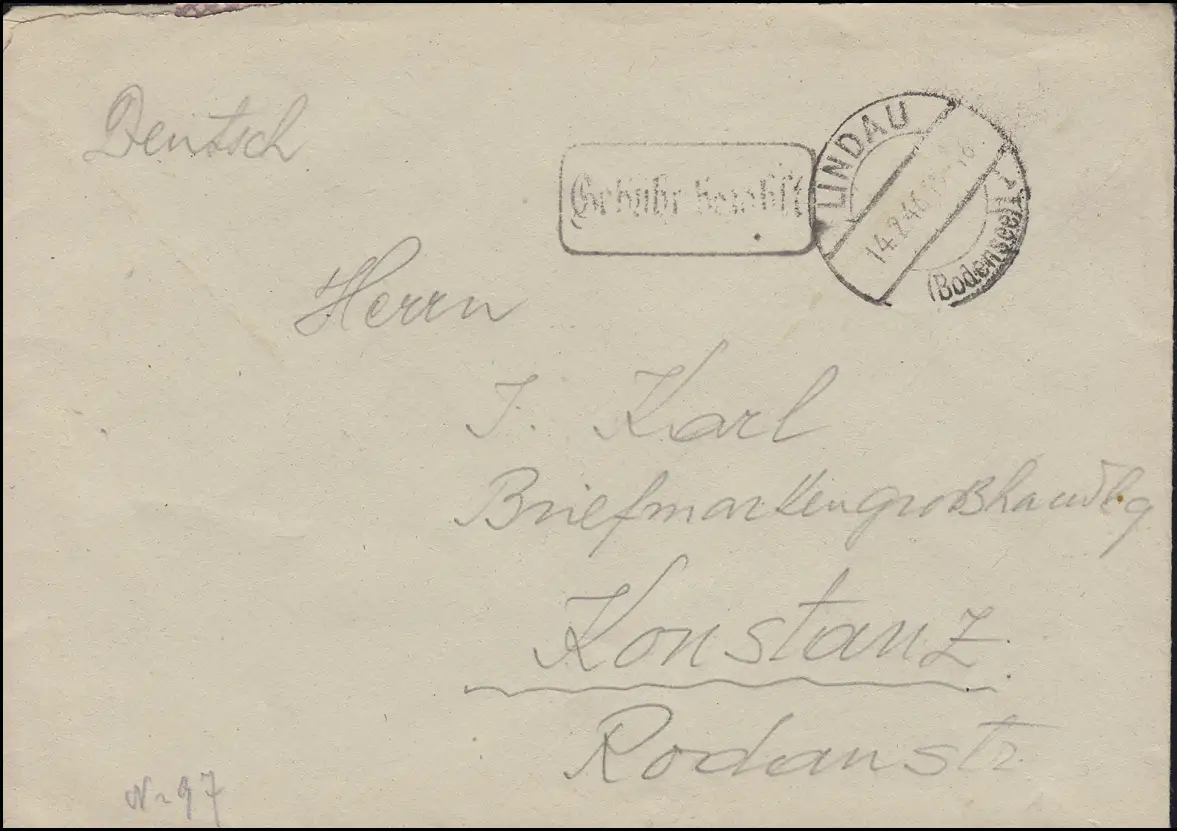 Deutsch
Gebühr bezahlt
LINDAU
14.2.46
(Bodensee)
Herrn
J. Karl
Briefmarkengroßhandlg
Konstanz
Rodanstr
97